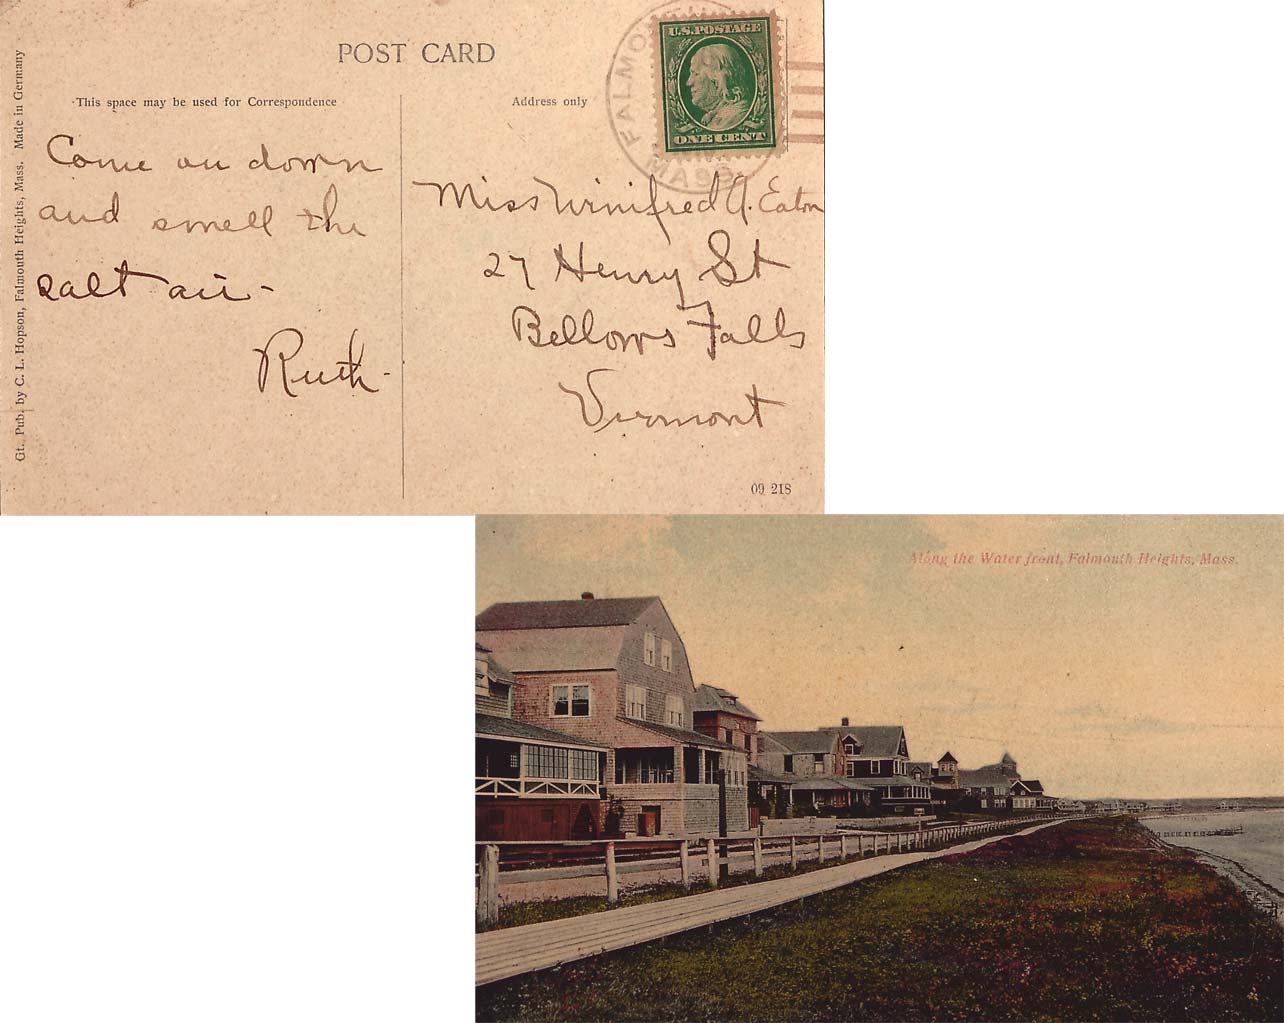 POST CARD
This space may be used for Correspondence
Address only
FALMO
MASS.
U.S. POSTAGE
ONE CENT
Come on down
and smell the
salt air -
Ruth -
Miss Winifred A. Eaton
27 Henry St
Bellows Falls
Vermont
Gt. Pub. by C. L. Hopson, Falmouth Heights, Mass. Made in Germany
09 218
Along the Water front, Falmouth Heights, Mass.